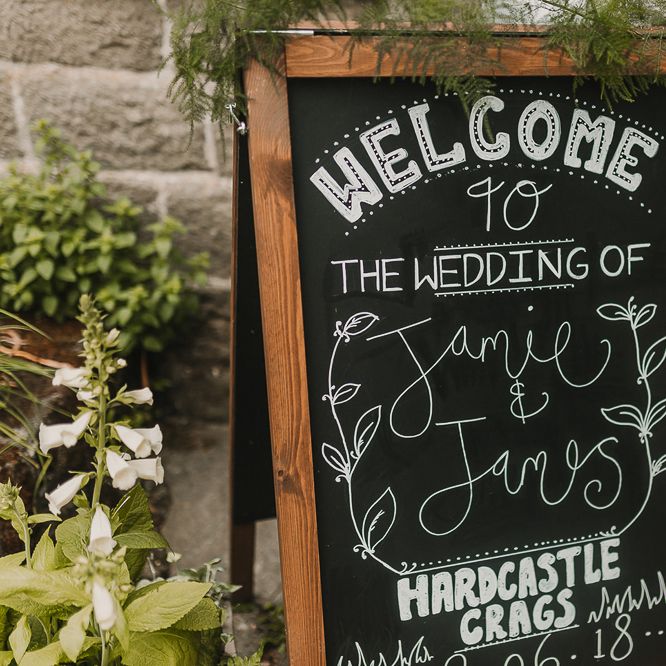 WELCOME
TO
THE WEDDING OF
Jamie
&
James
HARDCASTLE
CRAGS